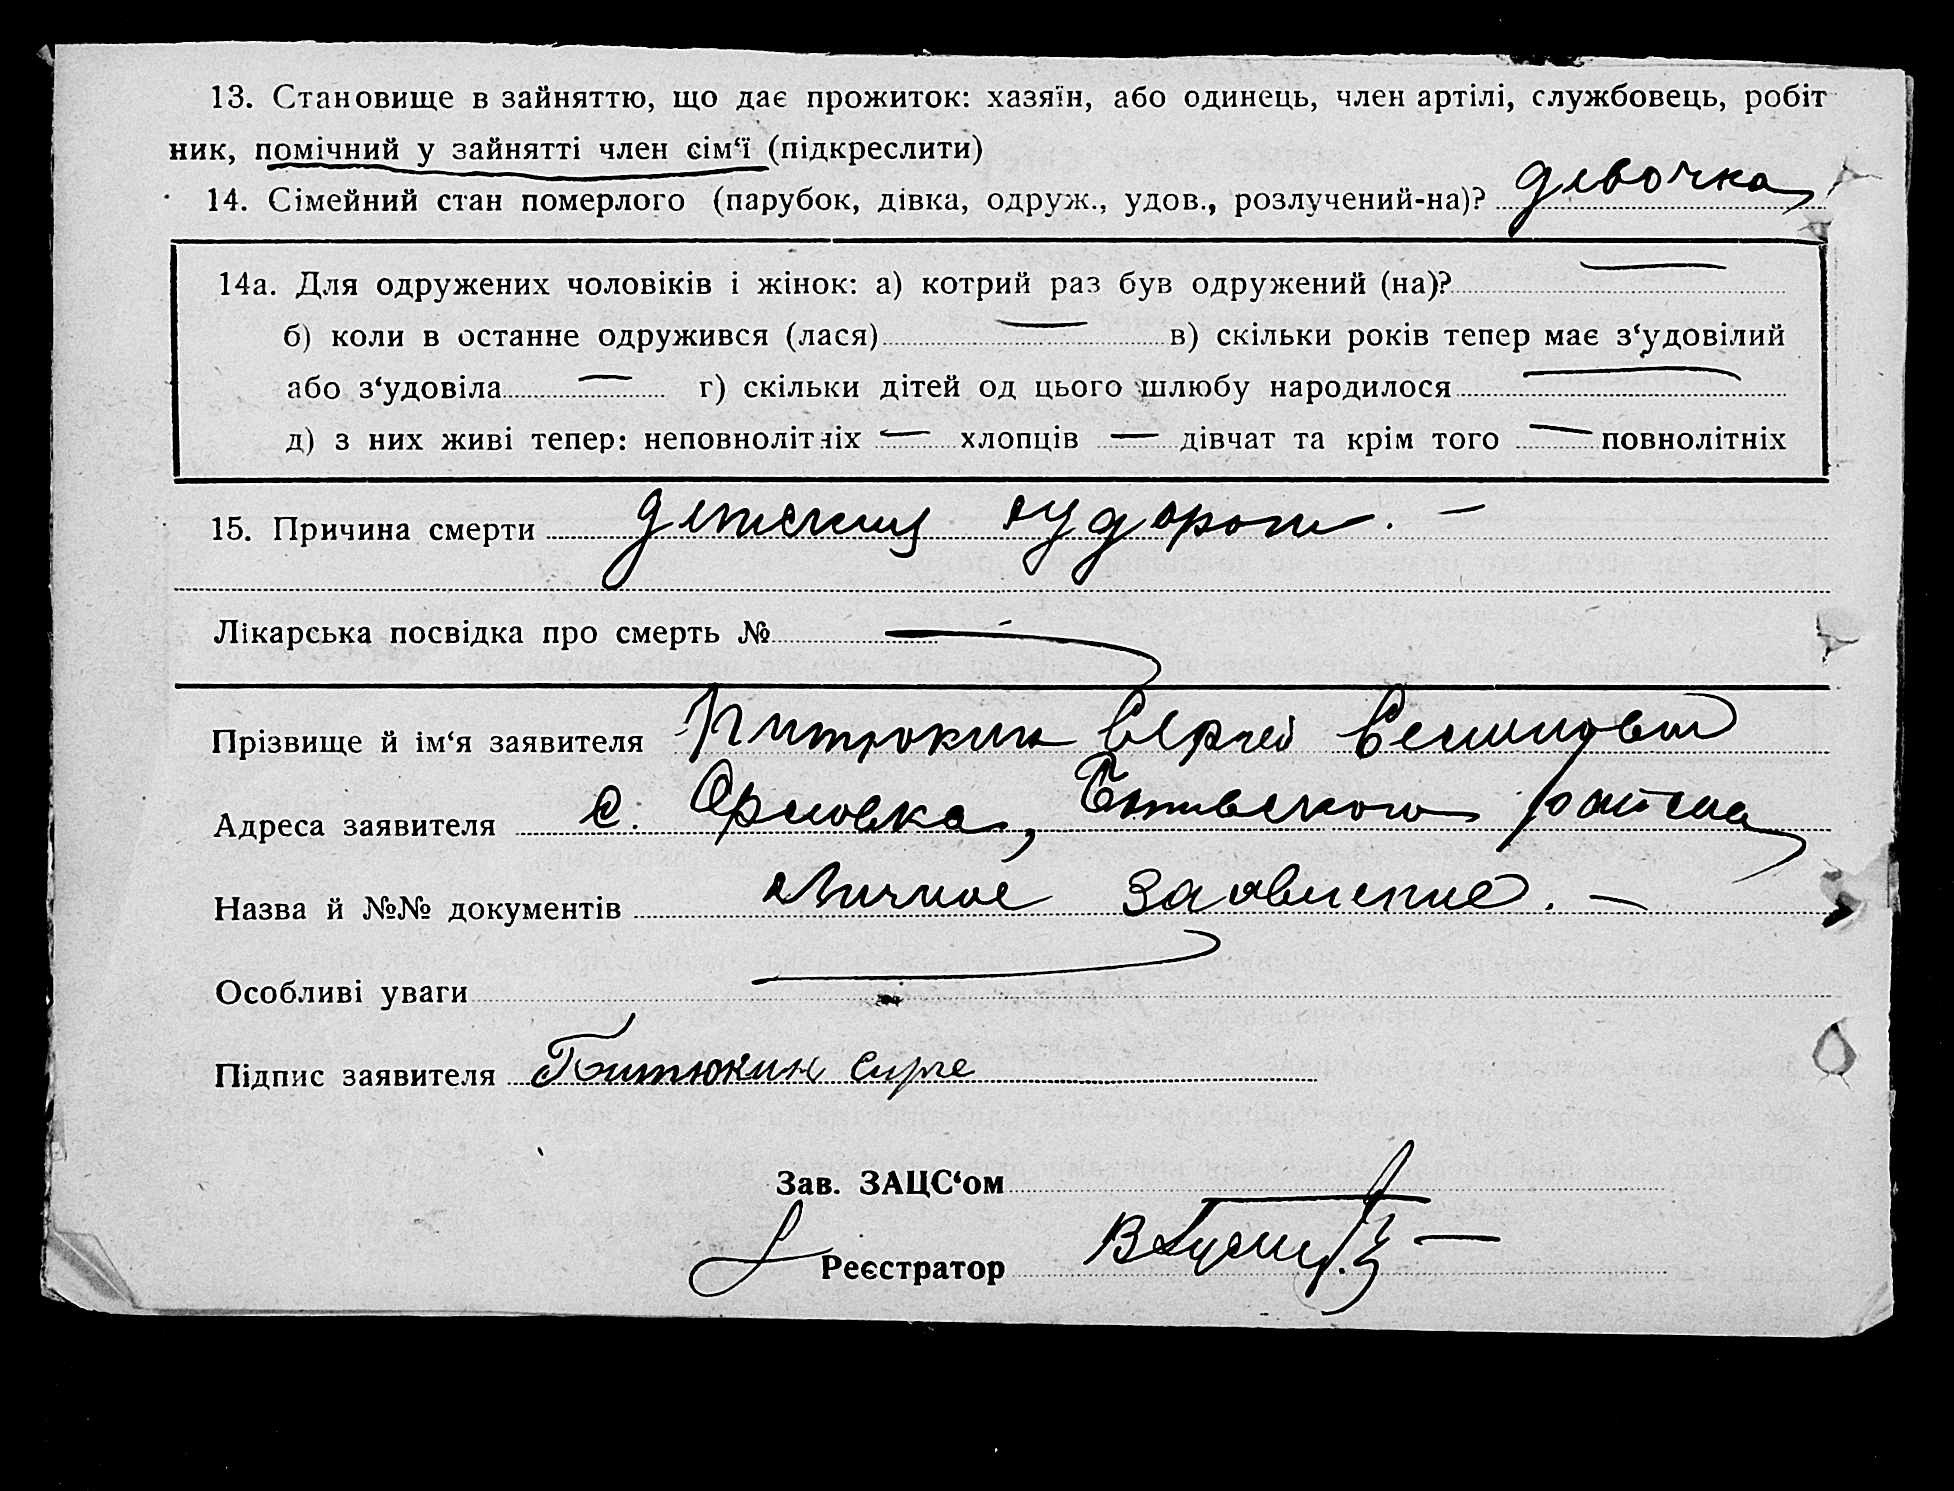 13. Становище в зайняттю, що дає прожиток: хазяїн, або одинець, член артілі, службовець, робіт
ник, помічний у зайнятті член сім‘ї (підкреслити)
14. Сімейний стан померлого (парубок, дівка, одруж., удов., розлучений-на)? девочка
14а. Для одружених чоловіків і жінок: а) котрий раз був одружений (на)? —
б) коли в останне одружився (лася) — в) скільки років тепер має з‘удовілий
або з‘удовіла — г) скільки дітей од цього шлюбу народилося —
д) з них живі тепер: неповнолітніх — хлопців — дівчат та крім того — повнолітніх
15. Причина смерти детский судороги. —
Лікарська посвідка про смерть № —
Прізвище й ім‘я заявителя Сергей
Адреса заявителя с. Орловка, района
Назва й №№ документів Личное заявление. —
Особливі уваги —
Підпис заявителя Битюкин Сирге
Зав. ЗАЦС‘ом
Реєстратор